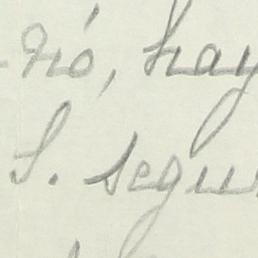 rió, hay
S. segur